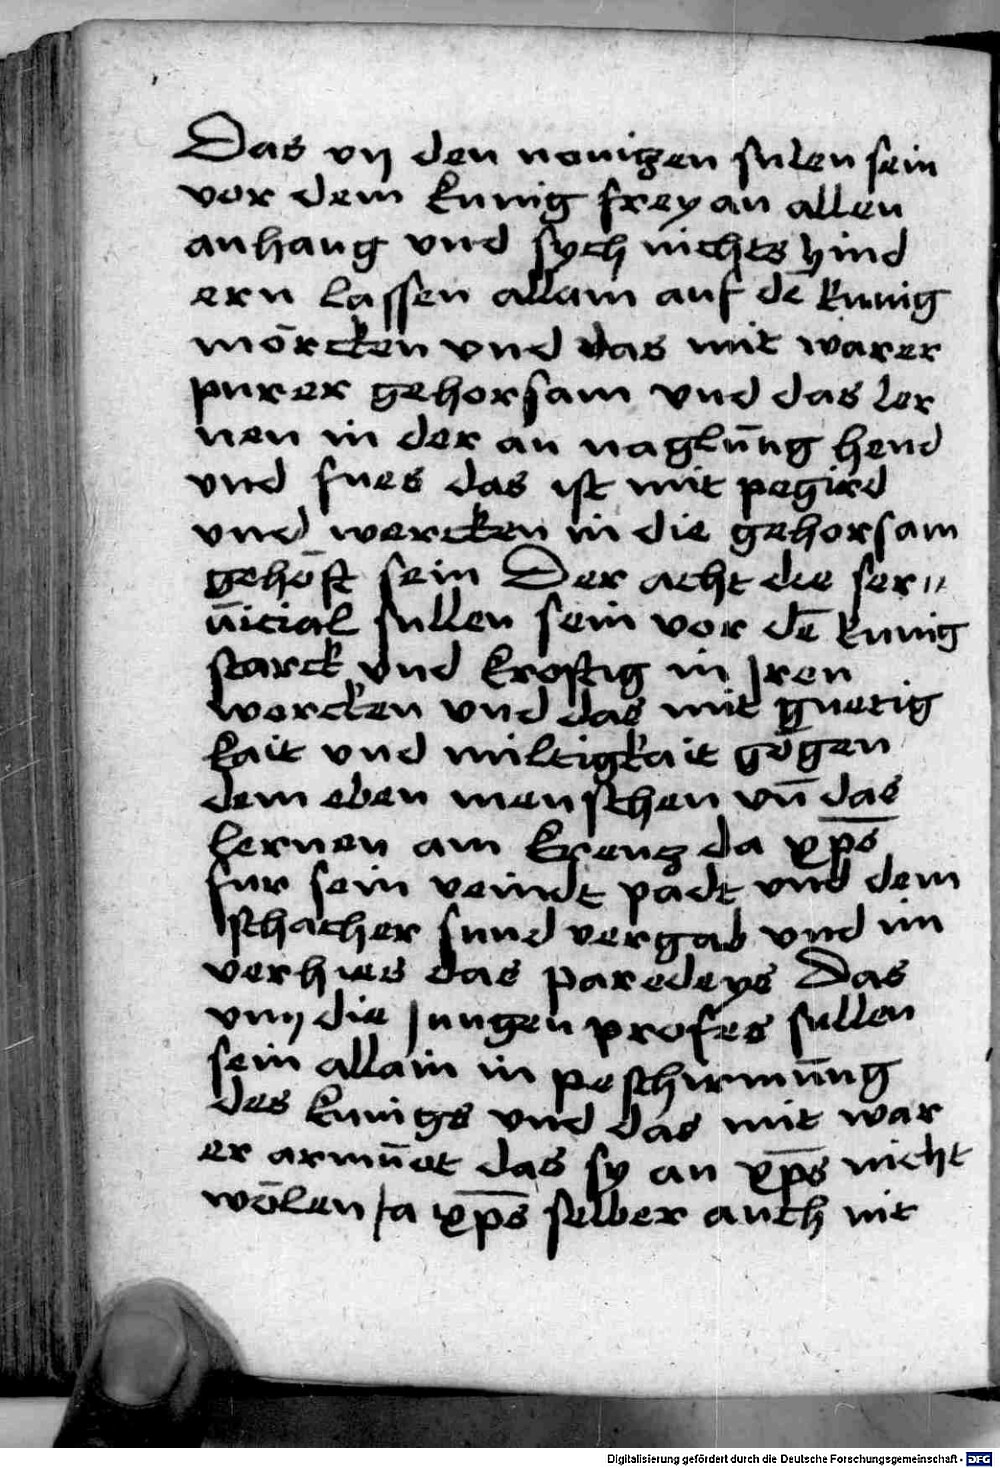 Das vij den nouigen sulen sein
vor dem kunig frey an allen
anhang vnd sych nichts hind
ern lassen allain auf dē kunig
mörcken vnd das mit warer
purer gehorsam vnd das ler
nen in der an naglūng hend
vnd fues das ist mit pegird
vnd wercken in die gehorsam
gehöft sein Der acht die ser〃
ūicial sullen sein vor dē kunig
starck vnd kroftig in Jren
worcken vnd das mit guetig
kait vnd miltigkait gögen
dem eben menschen vn̄ das
lernen am kreuz da xp̄s
fur sein veindt padt vnd dem
schacher sund vergab vnd im
verhies das paredeys Das
viiij die Jungen profes sullen
sein allain in peschirmūng
des kunigs vnd das mit war
er armūet das sy an xp̄s nicht
wölen ia xp̄s selber auch nit
Digitalisierung gefördert durch die Deutsche Forschungsgemeinschaft - DFG